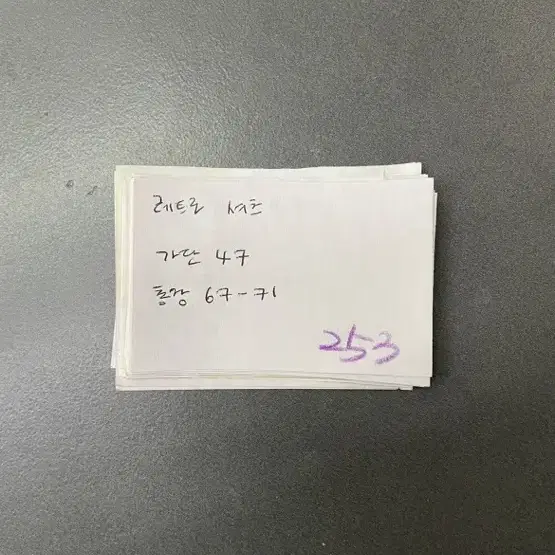 레트로 셔츠
가단 47
총장 67-71
253